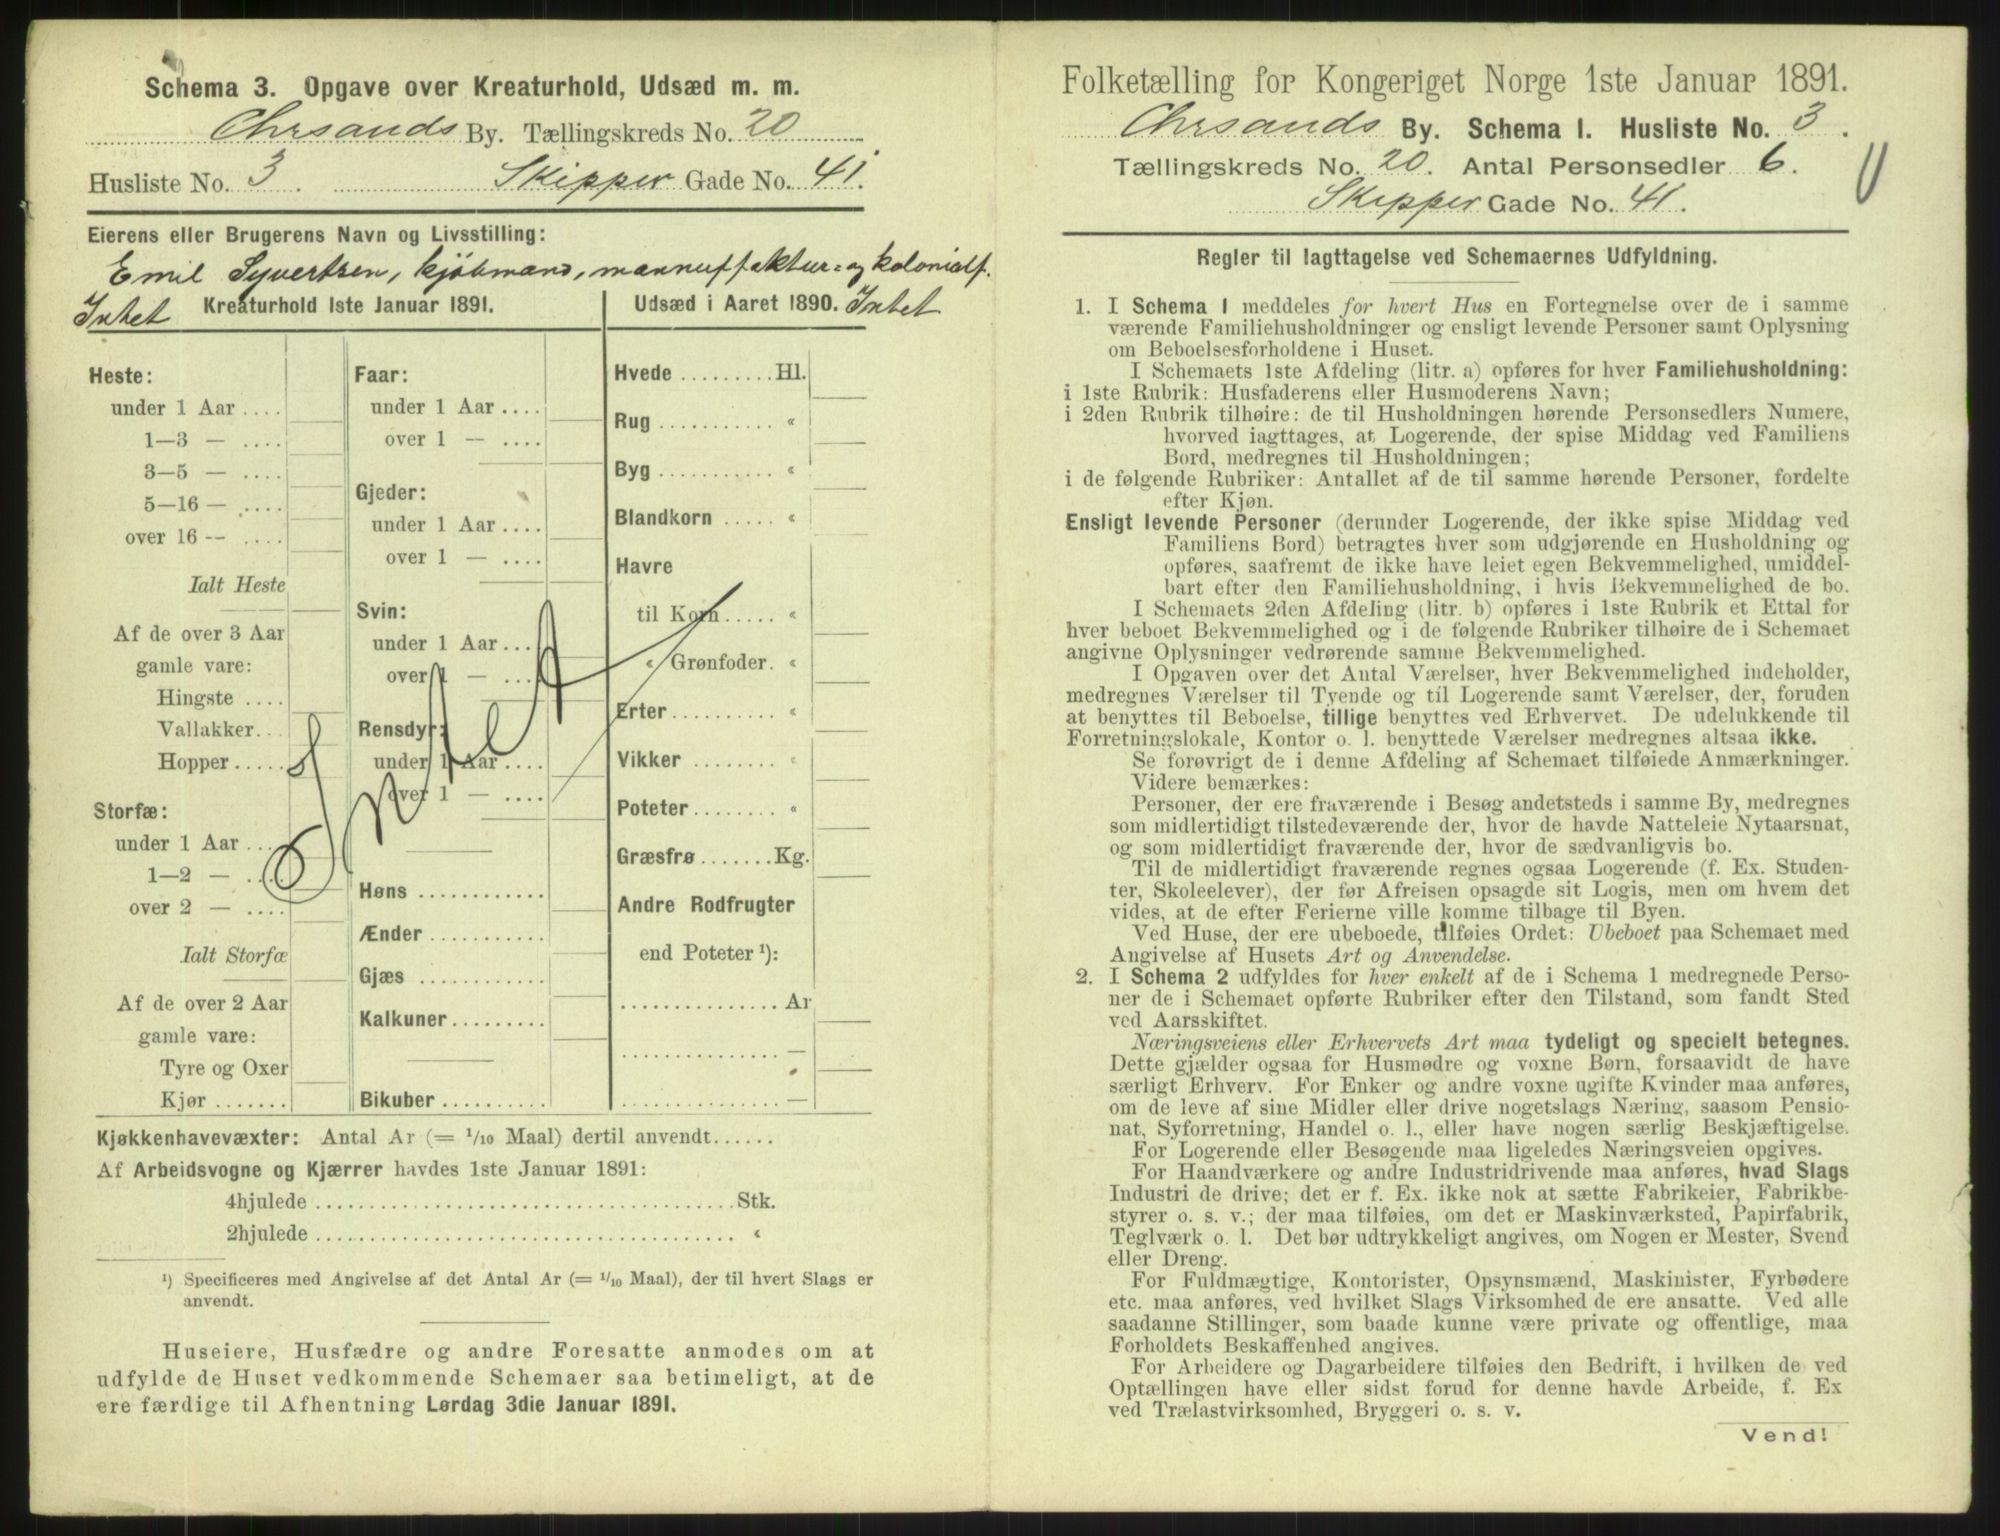 Schema 3. Opgave over Kreaturhold, Udsæd m. m.
Chrsands By. Tællingskreds No. 20
Husliste No. 3. Skipper Gade No. 41.
Eierens eller Brugerens Navn og Livsstilling:
Emil Syvertsen, kjøbmand, mannuffaktur- og kolonialf.
Intet Kreaturhold 1ste Januar 1891.
Heste:
under 1 Aar ....
1—3 — ....
3—5 — ....
5—16 — ....
over 16 -- ....
Ialt Heste
Af de over 3 Aar
gamle vare:
Hingste ....
Vallakker...
Hopper.....
Storfæ:
under 1 Aar ...
1—2 — ....
over 2 — ....
Ialt Storfæ
Af de over 2 Aar
gamle vare:
Tyre og Oxer
Kjør .......
Faar:
under 1 Aar ....
over 1 — ....
Gjeder:
under 1 Aar ....
over 1 — ....
Svin:
under 1 Aar ...
over 1 — ....
Rensdyr:
under 1 Aar ....
over 1 — ....
Høns ............
Ænder ...........
Gjæs ............
Kalkuner.........
Bikuber ..........
Intet
Udsæd i Aaret 1890. Intet
Hvede .........Hl.
Rug ........... «
Byg ........... «
Blandkorn ..... «
Havre
til Korn ..... «
« Grønfoder. «
Erter .......... «
Vikker ........ «
Poteter ........ «
Græsfrø .......Kg.
Andre Rodfrugter
end Poteter ¹):
............... Ar
............... —
............... —
Kjøkkenhavevæxter: Antal Ar (= 1/10 Maal) dertil anvendt......
Af Arbeidsvogne og Kjærrer havdes 1ste Januar 1891:
4hjulede .......................................Stk.
2hjulede ....................................... «
¹) Specificeres med Angivelse af det Antal Ar (= 1/10 Maal), der til hvert Slags er
anvendt.
Huseiere, Husfædre og andre Foresatte anmodes om at
udfylde de Huset vedkommende Schemaer saa betimeligt, at de
ere færdige til Afhentning Lørdag 3die Januar 1891.
Folketælling for Kongeriget Norge 1ste Januar 1891.
Chrsands By. Schema I. Husliste No. 3.
Tællingskreds No. 20. Antal Personsedler 6.
Skipper Gade No. 41.
Regler til Iagttagelse ved Schemaernes Udfyldning.
1. I Schema I meddeles for hvert Hus en Fortegnelse over de i samme
værende Familiehusholdninger og ensligt levende Personer samt Oplysning
om Beboelsesforholdene i Huset.
I Schemaets 1ste Afdeling (litr. a) opføres for hver Familiehusholdning:
i 1ste Rubrik: Husfaderens eller Husmoderens Navn;
i 2den Rubrik tilhøire: de til Husholdningen hørende Personsedlers Numere,
hvorved iagttages, at Logerende, der spise Middag ved Familiens
Bord, medregnes til Husholdningen;
i de følgende Rubriker: Antallet af de til samme hørende Personer, fordelte
efter Kjøn.
Ensligt levende Personer (derunder Logerende, der ikke spise Middag ved
Familiens Bord) betragtes hver som udgjørende en Husholdning og
opføres, saafremt de ikke have leiet egen Bekvemmelighed, umiddel-
bart efter den Familiehusholdning, i hvis Bekvemmelighed de bo.
I Schemaets 2den Afdeling (litr. b) opføres i 1ste Rubrik et Ettal for
hver beboet Bekvemmelighed og i de følgende Rubriker tilhøire de i Schemaet
angivne Oplysninger vedrørende samme Bekvemmelighed.
I Opgaven over det Antal Værelser, hver Bekvemmelighed indeholder,
medregnes Værelser til Tyende og til Logerende samt Værelser, der, foruden
at benyttes til Beboelse, tillige benyttes ved Erhvervet. De udelukkende til
Forretningslokale, Kontor o. l. benyttede Værelser medregnes altsaa ikke.
Se forøvrigt de i denne Afdeling af Schemaet tilføiede Anmærkninger.
Videre bemærkes:
Personer, der ere fraværende i Besøg andetsteds i samme By, medregnes
som midlertidigt tilstedeværende der, hvor de havde Natteleie Nytaarsnat,
og som midlertidigt fraværende der, hvor de sædvanligvis bo.
Til de midlertidigt fraværende regnes ogsaa Logerende (f. Ex. Studen-
ter, Skoleelever), der før Afreisen opsagde sit Logis, men om hvem det
vides, at de efter Ferierne ville komme tilbage til Byen.
Ved Huse, der ere ubeboede, tilføies Ordet: Ubeboet paa Schemaet med
Angivelse af Husets Art og Anvendelse.
2. I Schema 2 udfyldes for hver enkelt af de i Schema 1 medregnede Perso-
ner de i Schemaet opførte Rubriker efter den Tilstand, som fandt Sted
ved Aarsskiftet.
Næringsveiens eller Erhvervets Art maa tydeligt og specielt betegnes.
Dette gjælder ogsaa for Husmødre og voxne Børn, forsaavidt de have
særligt Erhverv. For Enker og andre voxne ugifte Kvinder maa anføres,
om de leve af sine Midler eller drive nogetslags Næring, saasom Pensio-
nat, Syforretning, Handel o. l., eller have nogen særlig Beskjæftigelse.
For Logerende eller Besøgende maa ligeledes Næringsveien opgives.
For Haandværkere og andre Industridrivende maa anføres, hvad Slags
Industri de drive; det er f. Ex. ikke nok at sætte Fabrikeier, Fabrikbe-
styrer o. s. v.; der maa tilføies, om det er Maskinværksted, Papirfabrik,
Teglværk o. l. Det bør udtrykkeligt angives, om Nogen er Mester, Svend
eller Dreng.
For Fuldmægtige, Kontorister, Opsynsmænd, Maskinister, Fyrbødere
etc. maa anføres, ved hvilket Slags Virksomhed de ere ansatte. Ved alle
saadanne Stillinger, som baade kunne være private og offentlige, maa
Forholdets Beskaffenhed angives.
For Arbeidere og Dagarbeidere tilføies den Bedrift, i hvilken de ved
Optællingen have eller sidst forud for denne havde Arbeide, f. Ex
ved Trælastvirksomhed, Bryggeri o. s. v.
Vend!